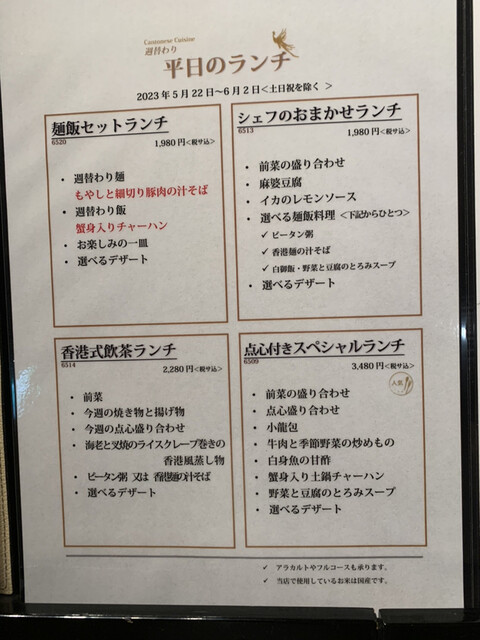 Cantonese Cuisine
週替わり
平日のランチ
2023年5月22日～6月2日<土日祝を除く >
麺飯セットランチ
6520
1,980円<税サ込>
・ 週替わり麺
もやしと細切り豚肉の汁そば
・ 週替わり飯
蟹身入りチャーハン
・ お楽しみの一皿
・ 選べるデザート
シェフのおまかせランチ
6513
1,980円<税サ込>
・ 前菜の盛り合わせ
・ 麻婆豆腐
・ イカのレモンソース
・ 選べる麺飯料理 <下記からひとつ>
✓ ピータン粥
✓ 香港麺の汁そば
✓ 白御飯・野菜と豆腐のとろみスープ
・ 選べるデザート
香港式飲茶ランチ
6514
2,280円<税サ込>
・ 前菜
・ 今週の焼き物と揚げ物
・ 今週の点心盛り合わせ
・ 海老と叉焼のライスクレープ巻きの
香港風蒸し物
・ ピータン粥 又は 香港麺の汁そば
・ 選べるデザート
点心付きスペシャルランチ
6509
3,480円<税サ込>
人気
・ 前菜の盛り合わせ
・ 点心盛り合わせ
・ 小龍包
・ 牛肉と季節野菜の炒めもの
・ 白身魚の甘酢
・ 蟹身入り土鍋チャーハン
・ 野菜と豆腐のとろみスープ
・ 選べるデザート
✓ アラカルトやフルコースも承ります。
✓ 当店で使用しているお米は国産です。